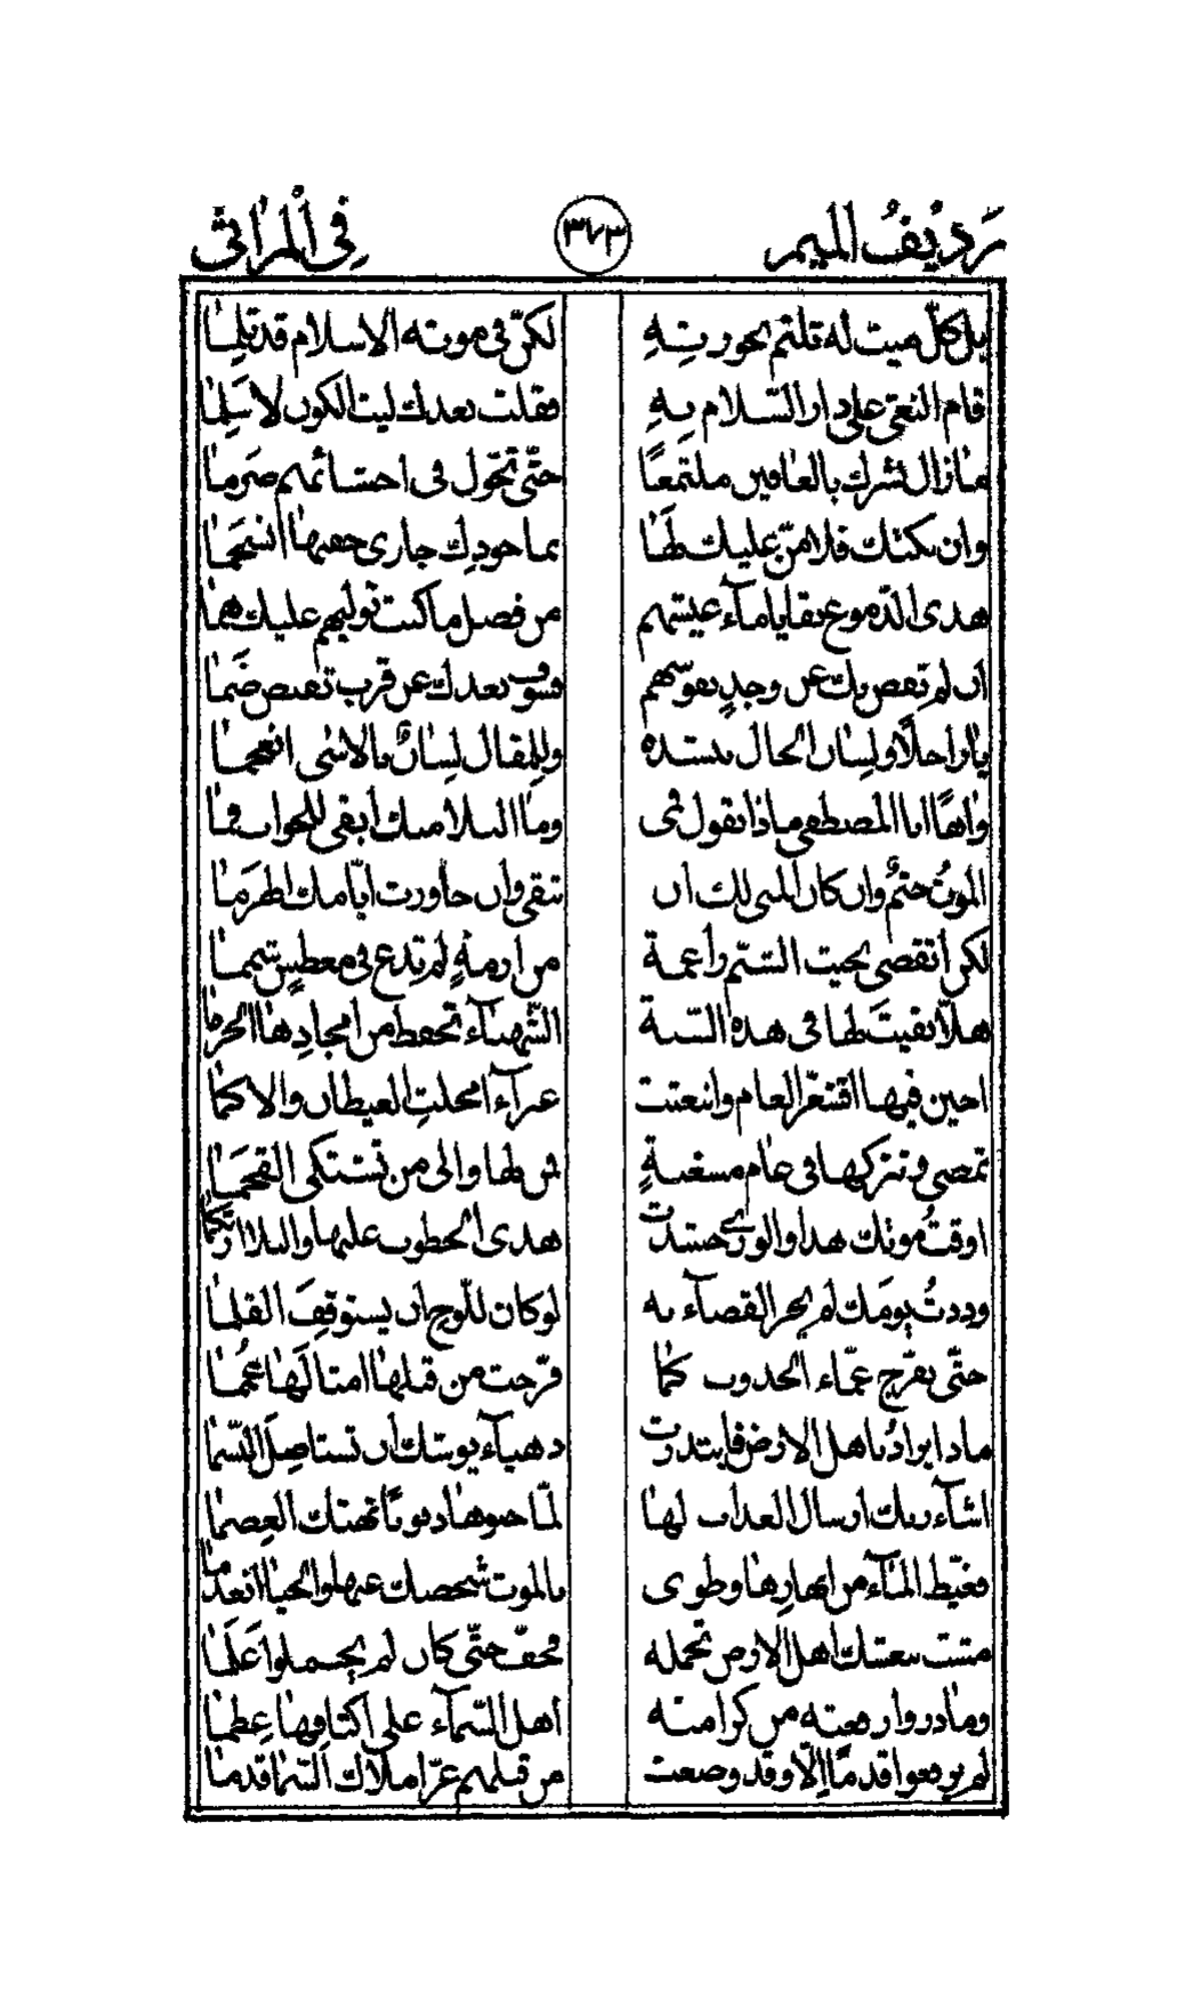 رديف الميم ٣٧٣ في المراثي
بل كلّ ميت له تلتم بحوزتهِ لكنّ في موته الاسلام قد ثلما
قام النعيّ على دار السّلام بهِ فقلت بعدك ليت الكون لا سلما
ما زال بشرك بالعافين ملتمعًا حتّى تحوّل في احشائهم ضرما
وان بكتك فلا منّ عليك لها بما جودك جارى
هذى الدّموع بقايا ماء عيشهم من فضل ما كنت توليهم عليك هما
ان لم تفض بك عن وجدٍ نفوسهم فسوف بعدك عن قرب تفيض ظما
يا راحلًا ولسان الحال ينشده وللمقال لسانٌ بالاسى
واهًا ابا المصطفى ماذا نقول وما البلا منك أبقى للجواب فما
الموت حتمٌ وان كان المنى لك ان تبقى وان جاورت ايّامك الهرما
لكن أتقضى بحيث السّنّ راغمة من أزمةٍ لم تدع في معطسٍ شمما
هلّا بقيت لها في هذه السّنة الشّهباء تحفظ من أمجادها الحرما
احين فيها اقشعرّ العام وانبعثت غبراء امحلت الغيطان والاكما
تمضي وتتركها في عام مسغبةٍ من لها والى من تشتكى القحما
اوقت موتك هذا والورى حشدت هذى الخطوب عليها والبلا ارتكما
وددت يومك لم يجر القضاء به لو كان للّوح ان يستوقف القلما
حتّى تفرّج غمّاء الجدوب كما فرّجت من قبلها امثالها غمما
ماذا يراد باهل الارض فابتدرت دهياء يوشك أن تستاصل النّسما
اشاء ربك ارسال العذاب لها لمّا ذنوبًا تهتك العصما
فغيّض الماء من انهارها وطوى بالموت شخصك عنها والحيا انعدما
مشت بنعشك اهل الارض تحمله فخفّ حتّى كان لم يحملوا علما
وما دروا رفعته من كرامته أهل السّماء على اكتافها عظما
لم يرفعوا قدمًا الّا وقد وضعت من قبلهم غرّ املاك السّما قدما